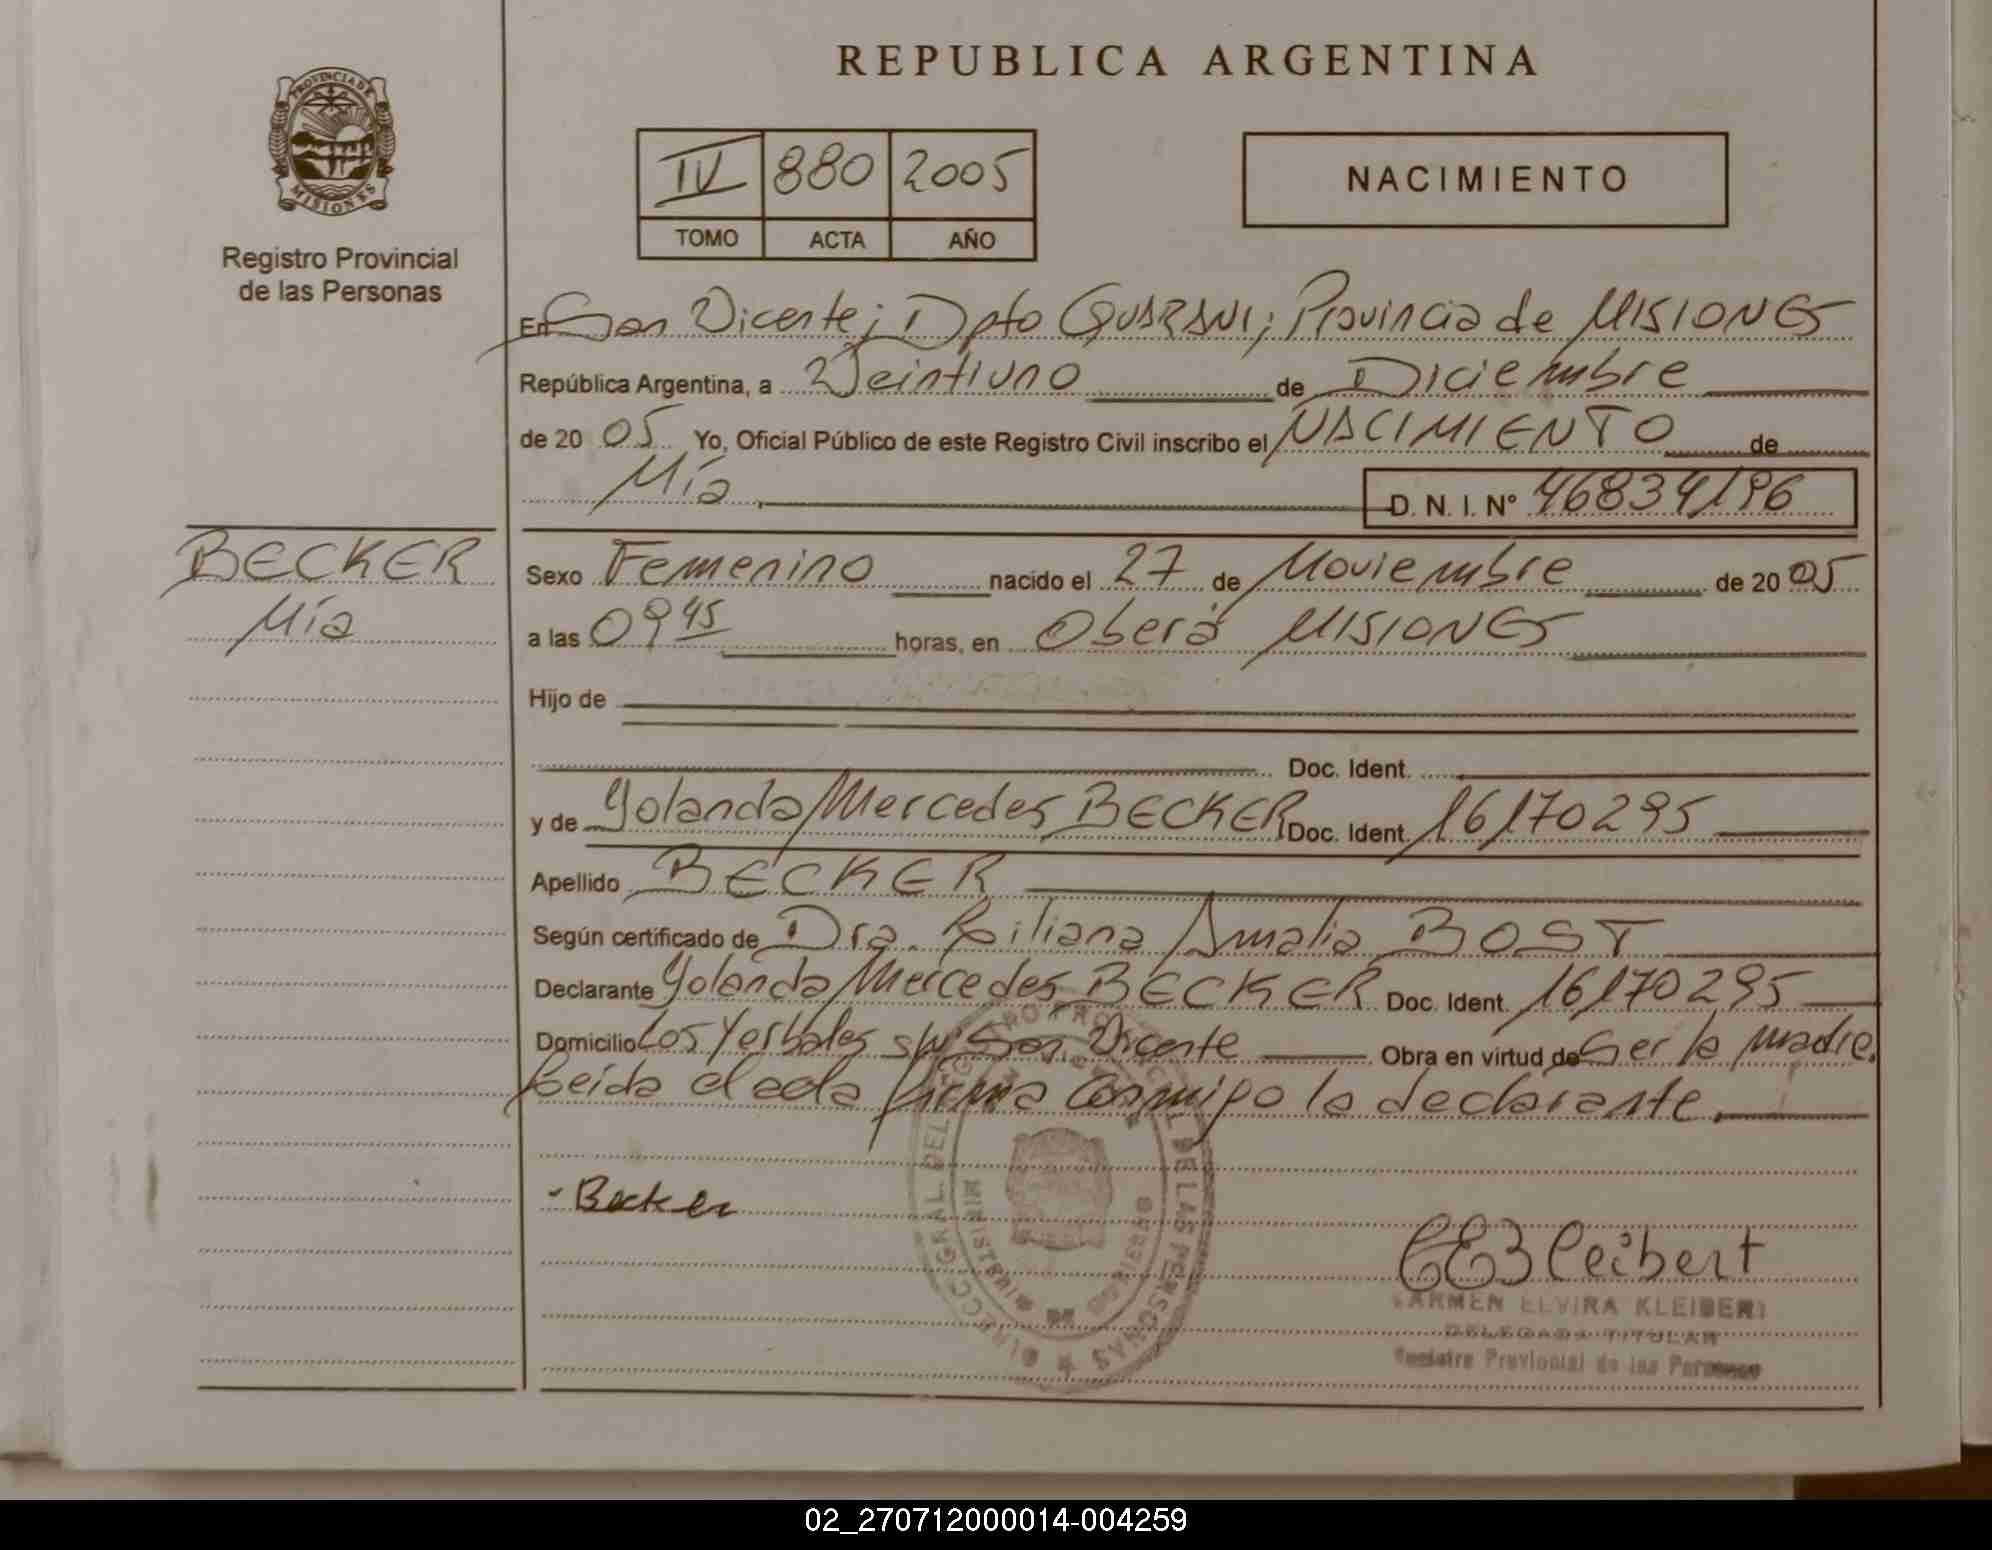 REPUBLICA ARGENTINA
PROVINCIA DE
MISIONES
Registro Provincial
de las Personas
IV 880 2005
TOMO ACTA AÑO
NACIMIENTO
En San Vicente; Dpto GUARANI; Provincia de MISIONES
República Argentina, a Veintiuno de Diciembre
de 20 05 Yo, Oficial Público de este Registro Civil inscribo el NACIMIENTO de
Mía D. N. I. N° 46834196
BECKER
Mía
Sexo Femenino nacido el 27 de Noviembre de 20 05
a las 09 45 horas, en Oberá MISIONES
Hijo de
Doc. Ident.
y de Yolanda Mercedes BECKER Doc. Ident. 16170295
Apellido BECKER
Según certificado de Dra. Liliana Amalia BOST
Declarante Yolanda Mercedes BECKER Doc. Ident. 16170295
Domicilio Los Yerbales s/n San Vicente Obra en virtud de Ser la madre.
Leída el acta firma conmigo la declarante.
Becker
CE3 Cleibert
CARMEN ELVIRA KLEIBERT
DELEGADA TITULAR
Registro Provincial de las Personas
DIRECC. GRAL. DEL REGISTRO PROVINCIAL DE LAS PERSONAS
02_270712000014-004259